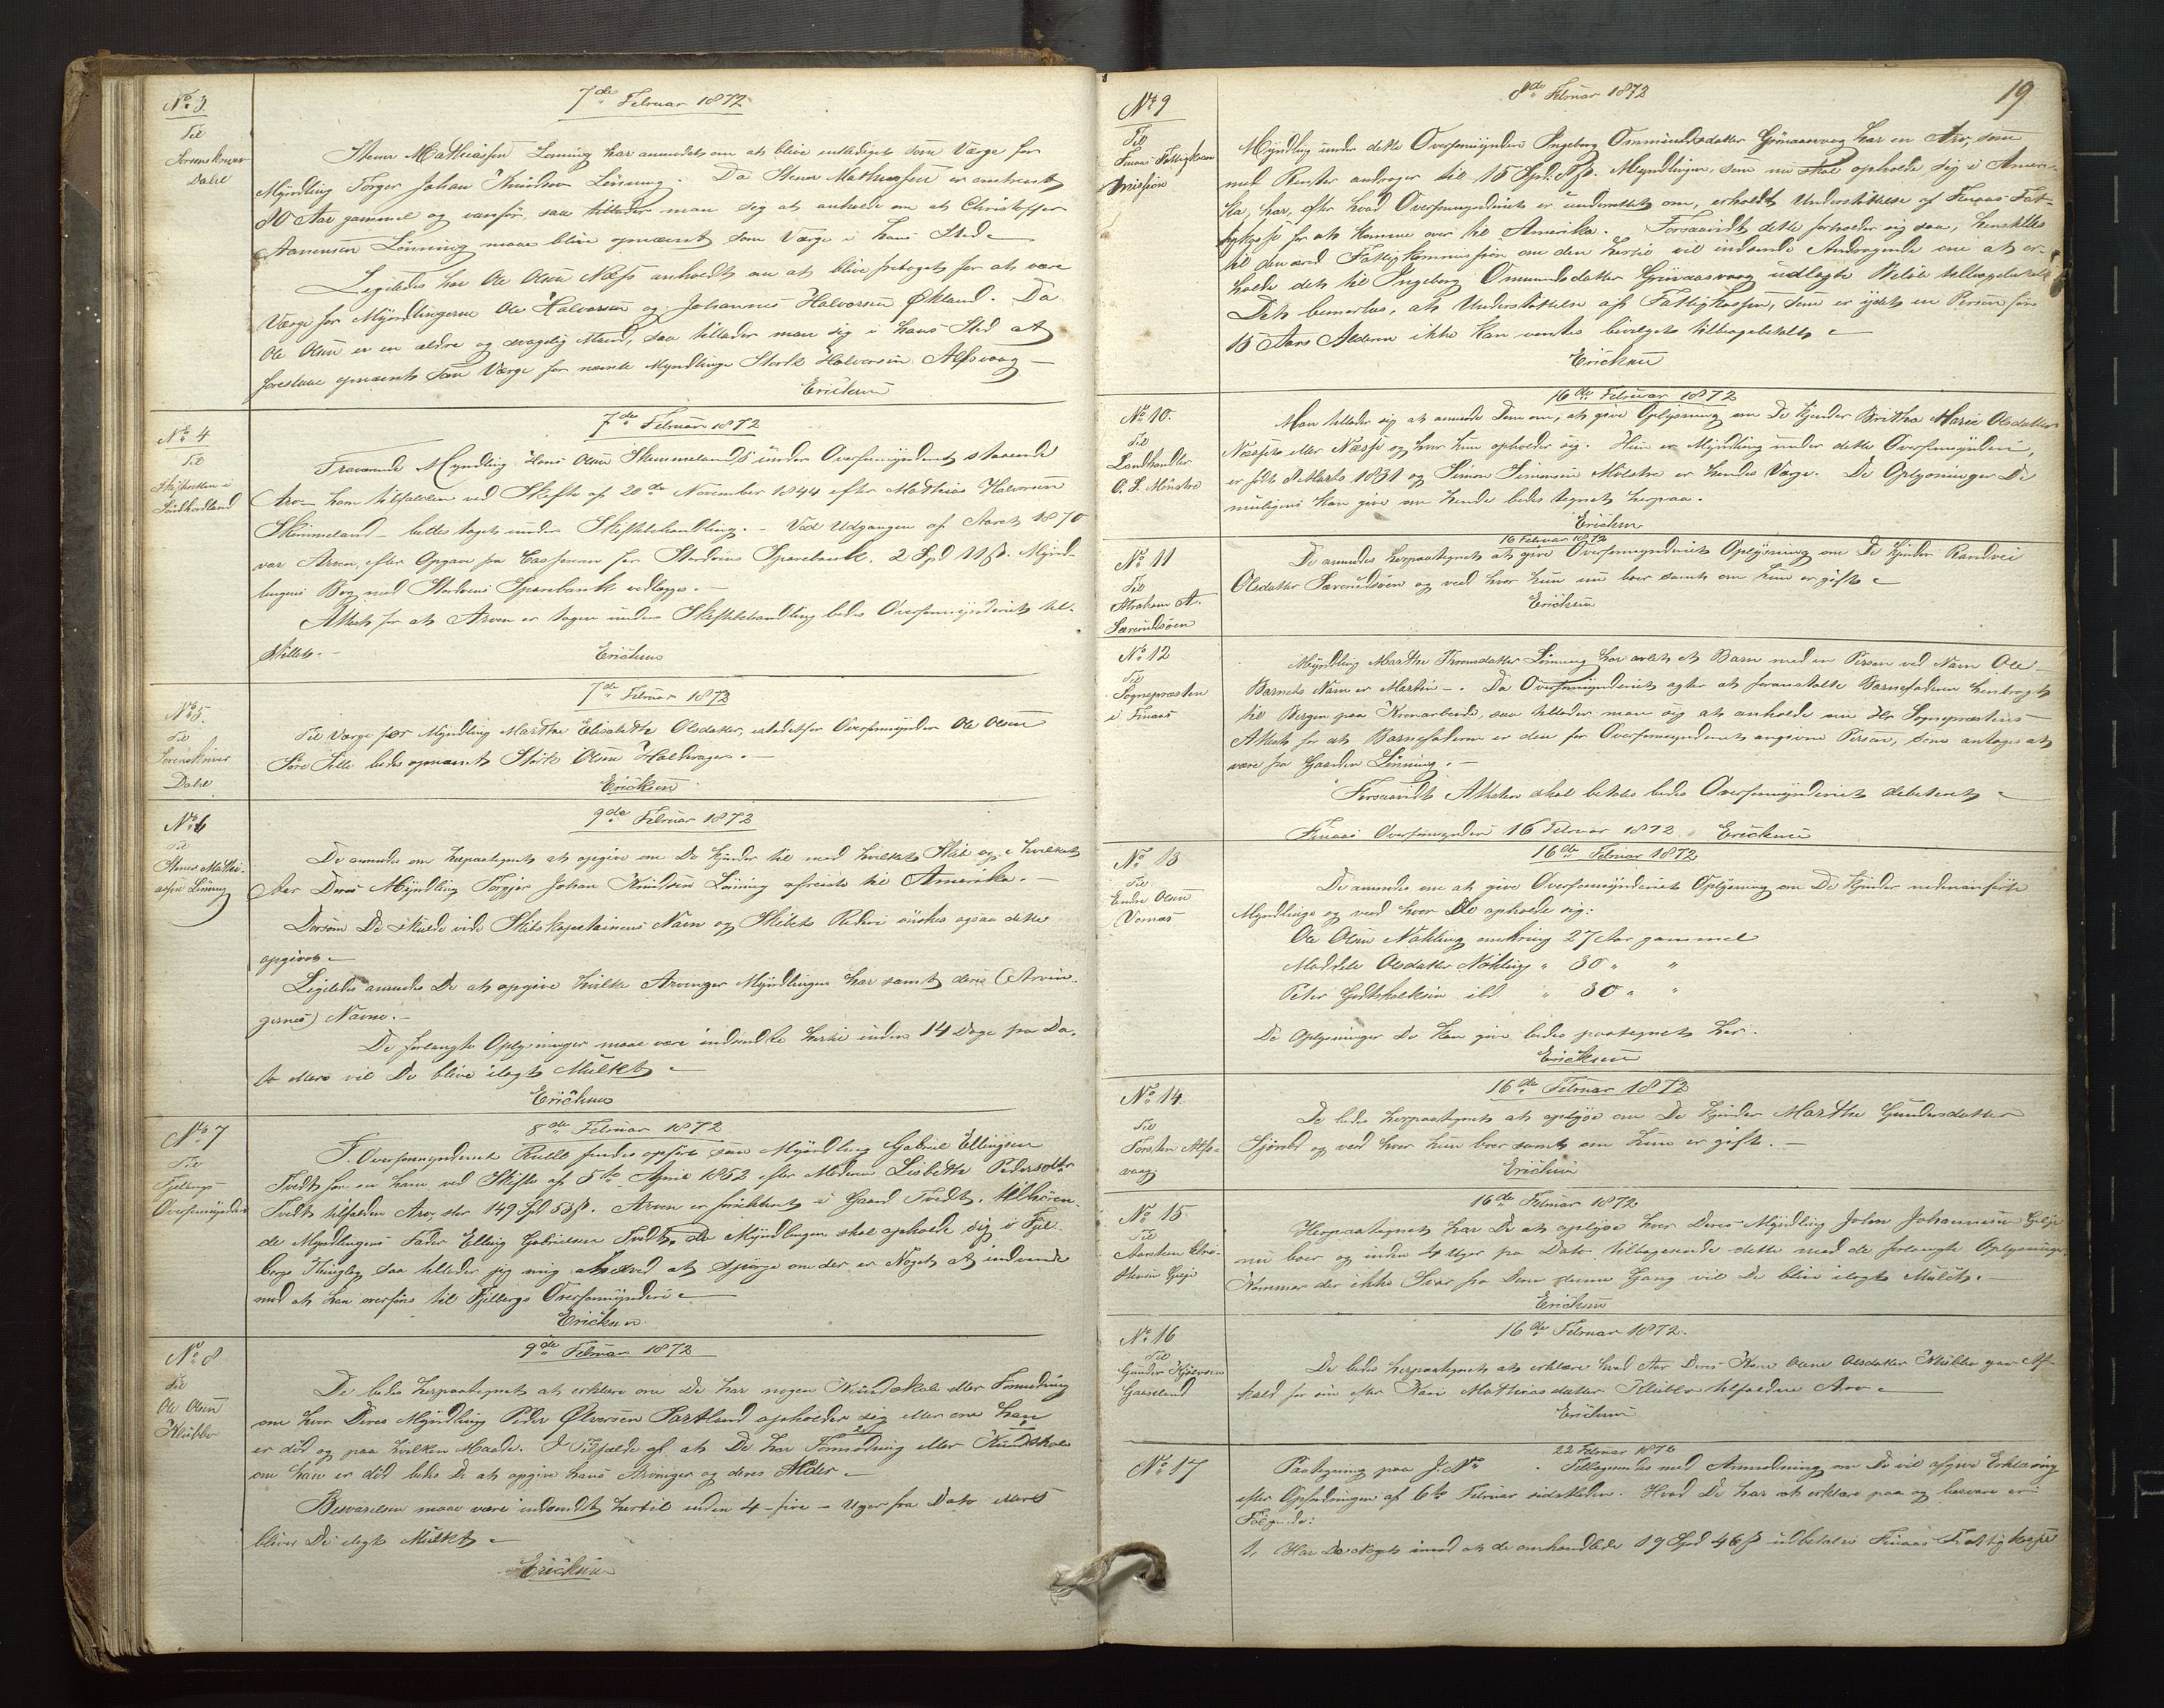 No 3
Til
Sorenskriver
Dahl
7de Februar 1872
Stener Mathiassen Lønning har anmodet om at blive entlediget som Værge for
Myndling Torger Johan Knudsen Lønning. Da Stener Mathiassen er omtrent
80 Aar gammel og vanfør, saa tillader man sig at anholde om at Christoffer
Aamunsen Lönning maa blive opnævnt som Værge i hans Sted
Ligeledes har Ole Olsen Næss anholdt om at blive fritaget for at være
Værge for Myndlingerne Ole Halvorsen og Johannes Halvorsen Økland. Da
Ole Olsen er en ældre og svagelig Mand, saa tillader man sig i hans Sted at
foreslaae opnævnt som Værge for nævnte Myndlinge Stork Halvorsen Alfsvaag
Ericksen
No 4
Til
Skifteretten i
Søndhordland
7de Februar 1872
Fraværende Myndling Hans Olsen Skimmelands under Overformynderiet staaende
Arv ham tilfalden ved Skifte af 20de November 1844 efter Mathias Halvorsen
Skimmeland bedes taget under Skiftebehandling. Ved Udgangen af Aaret 1870
var Arven, efter Opgave fra Cassereren for Stordøens Sparebank, 2 Spd 11 ß. Mynd-
lingens Bog med Stordøens Sparebank vedlægges.
Attest for at Arven er tagen under Skiftebehandling bedes Overformynderiet til-
stillet.
Ericksen
No 5.
Til
Sorenskriver
Dahl
7de Februar 1872
Til Værge for Myndling Marthe Elisabethe Olsdatter, istedetfor Overformynder Ole Olsen
Føre Lille bedes opnævnt Störk Olsen Haldorager.
Ericksen
No 6
Til
Stener Mathi-
assen Lönning
9de Februar 1872
De anmodes om herpaategnet at opgive om De kjender til med hvilket Skib og i hvilket
Aar Deres Myndling Torgjer Johan Knudsen Lönning afreiste til Amerika.
Dersom De skulde vide Skibskapetainens Navn og Skibets Rederi önskes ogsaa dette
opgivet
Ligeledes anmodes De at opgive hvilke Arvinger Myndlingen har samt deres (Arvin-
gernes) Navne.
De forlangte Oplysninger maae være indsendte hertil inden 14 Dage fra Da-
to ellers vil De blive ilagt Mulkt
Ericksen
No 7
Til
Fjelbergs
Overformynderi
8de Februar 1872
I Overformynderiets Rulle findes opført som Myndling Gabriel Ellingsen
Tvedt for en ham ved Skifte af 5te April 1852 efter Moderen Lisbethe Pedersdtr
Tvedt tilfalden Arv, stor 149 Spd 53 ß. Arven er prioriteret i Gaard Tvedt, tilhøren-
de Myndlingens Fader Elling Gabrielsen Tvedt. Da Myndlingen skal opholde sig i Fjel-
bergs Thinglag saa tillader jeg mig at spørge om der er Noget at indvende
mod at han overføres til Fjelbergs Overformynderi
Ericksen
No 8
Til
Ole Olsen
Klubben
9de Februar 1872
De bedes herpaategnet at erklære om De har nogen Kundskab eller Formodning
om hvor Deres Myndling Peder Ølversen Tartland opholder sig eller om han
er död og paa hvilken Maade. I Tilfælde af at De har Formodning eller Kundskab
om han er död bedes De at opgive hans Arvinger og deres Alder
Besvarelsen maae være indsendt hertil inden 4 - fire - Uger fra Dato ellers
bliver De ilagt Mulkt
Ericksen
19
No 9
Til
Finaas Fattigkom
mission
8de Februar 1872
Myndling under dette Overformynderi Ingeborg Ommundsdatter Grönaasvaag har en Arv, som
med Renter andrager til 15 Spd ß. Myndlingen, som nu skal opholde sig i Ameri-
ka, har, efter hvad Overformynderiet er underrettet om, erholdt Understøttelse af Finaas Fat-
tigkasse for at komme over til Amerika. Forsaavidt dette forholder sig saa, henstilles
til den ærede Fattigkommission om den hertil vil indsende Andragende om at er-
holde det til Ingeborg Omundsdatter Grönaasvaag udlagte Beløb tilbagebetalt
Det bemerkes, at Understøttelse af Fattigkassen, som er ydet en Person før
15 Aars Alderen ikke kan ventes bevilget tilbagebetalt
Ericksen
No 10.
Til
Landhandler
O. S. Mölstre
16de Februar 1872
Man tillader sig at anmode Dem om, at give Oplysning om De kjender Britha Marie Olsdatter
Næssøe eller Næsse og hvor hun opholder sig. Hun er Myndling under dette Overformynderi,
er født Marts 1831 og Simon Simonsen Mölstre er hendes Værge. De Oplysninger De
muligens kan give om hende bedes tegnet herpaa.
Ericksen
No 11
Til
Abraham A.
Særeidsøen
16 Februar 1872
De anmodes herpaategnet at give Overformynderiet Oplysning om De kjender Randvei
Olsdatter Særeidsøen og ved hvor hun nu boer samt om hun er gift
Ericksen
No 12
Til
Sognepræsten
i Finaas
Myndling Marthe Thronsdatter Lönning har avlet et Barn med en Person ved Navn Ole
Barnets Navn er Martin. Da Overformynderiet agter at foranstalte Barnefaderen henbragt
til Bergen paa Kronarbeide, saa tillader man sig at anholde om Hr Sognepræstens
Attest for at Barnefaderen er den for Overformynderiet angivne Person, som antages at
være fra Gaarden Lönning.
Forsaavidt Attesten skal betales bedes Overformynderiet debiteret
Finaas Overformynderi 16 Februar 1872. Ericksen
No 13
Til
Endre Olsen
Vornæs
16de Februar 1872
De anmodes om at give Overformynderiet Oplysning om De kjender nedenanførte
Myndlinge og ved hvor De opholde sig:
Ole Olsen Nökling omkring 27 Aar gammel
Madele Olsdatter Nökling " 30 " "
Peter Godtskalksen ibd " 30 " "
De Oplysninger De kan give bedes paategnet her.
Ericksen
No 14
Til
Torsten Alfs-
vaag
16de Februar 1872
De bedes herpaategnet at oplyse om De kjender Marthe Gundersdatter
og ved hvor hun boer samt om hun er gift.
Ericksen
No 15
Til
Aanen Chri-
stensen Geije
16de Februar 1872
Herpaategnet har De at oplyse hvor Deres Myndling John Johannesen Geije
nu boer og inden 4 Uger fra Dato tilbagesende dette med de forlangte Oplysninger.
Kommer der ikke Svar fra Dem denne Gang vil De blive ilagt Mulct.
Ericksen
No 16
Til
Gunder Kjølvesen
Gaaseland
16de Februar 1872.
De bedes herpaategnet at erklære hvad Aar Deres Kone Olsdatter Klubben gav Af-
kald for sin efter Kari Mathiasdatter Klubben tilfaldne Arv
Ericksen
No 17
22 Februar 1872
Paategning paa J. No . Tilbagesendes med Anmodning om De vil afgive Erklæring
efter Opfordringen af 6te Februar sidstleden. Hvad De har at erklære paa og besvare er
Følgende:
1, Har De Noget imod at de omhandlede 19 Spd 46 ß udbetales Finaas Fattigkasse